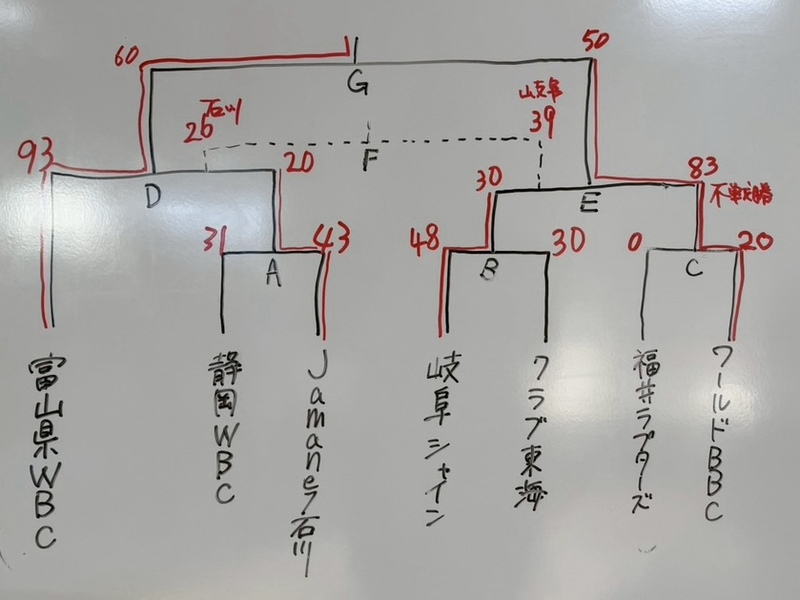 60
50
G
石川
26
岐阜
39
F
93
20
30
83
不戦勝
D
E
31
43
48
30
0
20
A
B
C
富山県WBC
静岡WBC
Jamaneラ石川
岐阜シャイン
クラブ東海
福井ラプターズ
ワールドBBC